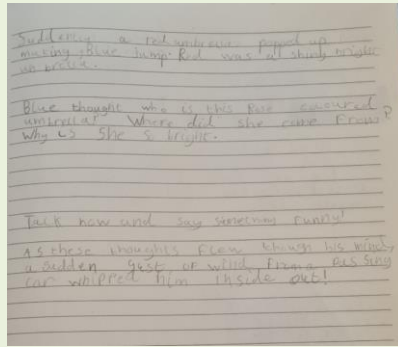 Suddenly a red umbrella popped up
making blue jump. Red was a shiny bright
umbrella.
Blue thought who is this coloured
umbrella? Where did she come from?
Why is She so bright.
Talk now and say something funny!
As these thoughts flew though his mind,
a sudden gust of wind from a passing
car whipped him inside out!